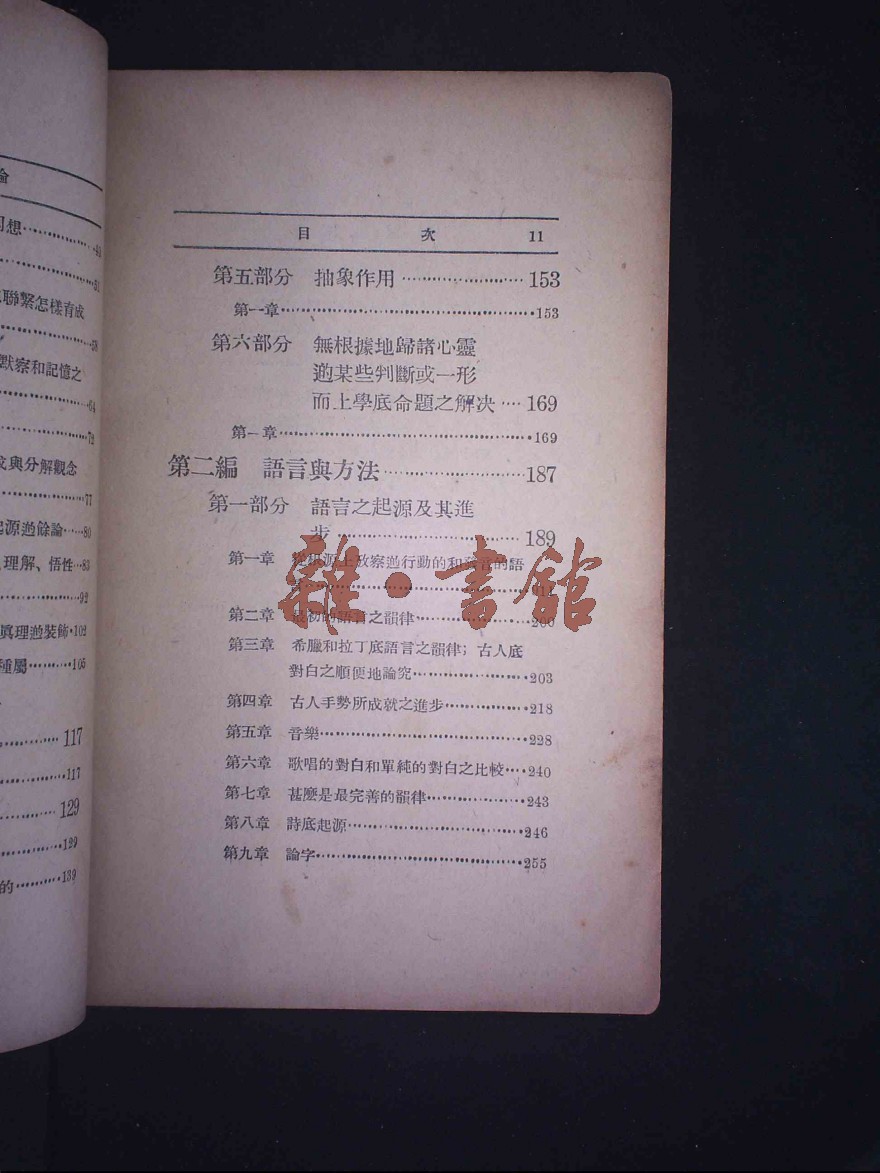 論
想 49
51
聯繫怎樣育成
58
默察和記憶之
64
72
與分解觀念
77
起源過餘論 80
理解、悟性 83
92
真理過裝飾 102
種屬 105
117
117
129
129
的 139
目 次 11
第五部分 抽象作用 153
第一章 153
第六部分 無根據地歸諸心靈
過某些判斷或一形
而上學底命題之解决 169
第一章 169
第二編 語言與方法 187
第一部分 語言之起源及其進
步 189
第一章 從根源上攷察過行動的和發音的語
第二章 最初的語言之韻律 200
第三章 希臘和拉丁底語言之韻律；古人底
對白之順便地論究 203
第四章 古人手勢所成就之進步 218
第五章 音樂 228
第六章 歌唱的對白和單純的對白之比較 240
第七章 甚麼是最完善的韻律 243
第八章 詩底起源 246
第九章 論字 255
雜·書館